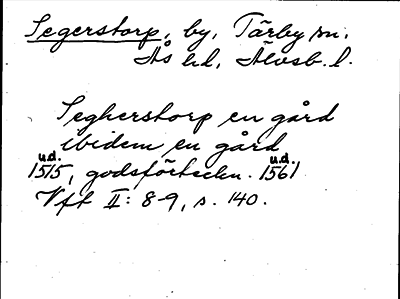 Segerstorp, by, Tärby sn.
Ås hd, Älvsb. l.
Segherstorp en gård
ibidem en gård
u.d. u.d.
1515, godsförteckn. 1561
Vft II: 8-9, s. 140.